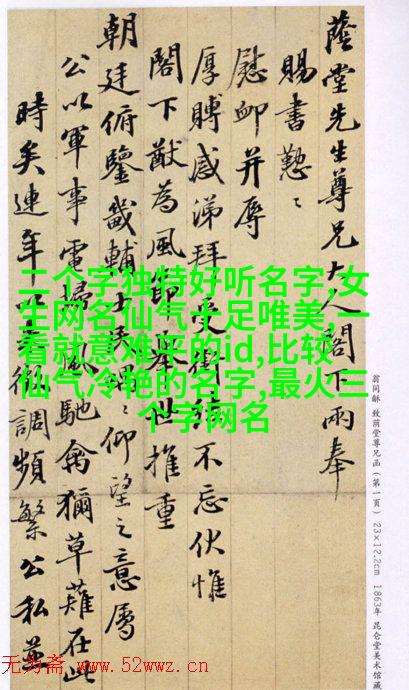 蔭堂先生尊兄大人閣下兩奉
賜書懃〻
慰卹并辱
厚賻感涕拜受銜不忘伏惟
閣下猷為風節舉世推重
朝廷俯鑒畿輔士〻仰望之意屬
公以軍事電掃風馳禽獮草薙在此
時矣連年以來徵調頻繁公私並
二个字独特好听名字,女
生网名仙气十足唯美,一
看就意难平的id,比较
仙气冷艳的名字,最火三
个字网名
翁同龢 致蔭堂尊兄函(第一頁) 23×12.2cm 1863年 昆仑堂美术馆藏
无为斋 www.52wwz.cn